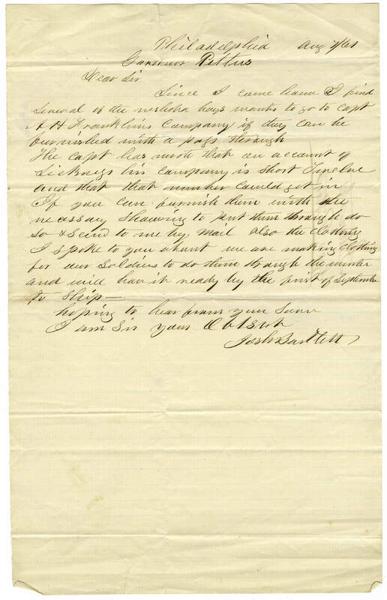 Philadelphia Aug 7/61
Governor Pettus
Dear Sir
Since I came home I find
several of the neshoba boys wants to go to Capt
A H Franklins Company if they can be
furnished with a pass through
The Capt has wrote that on account of
Sickness his company is short Twelve
and that that number could get in
If you can furnish them with the
necessay to put them through do
so & send to me by mail also the Clothing
I spoke to you about we are making Clothing
for our Soldiers to do them through the winter
and will have it ready by the first of September
to Ship—
hoping to hear from you Soon
I am Sir your Obt Svt
Josh Bartlett